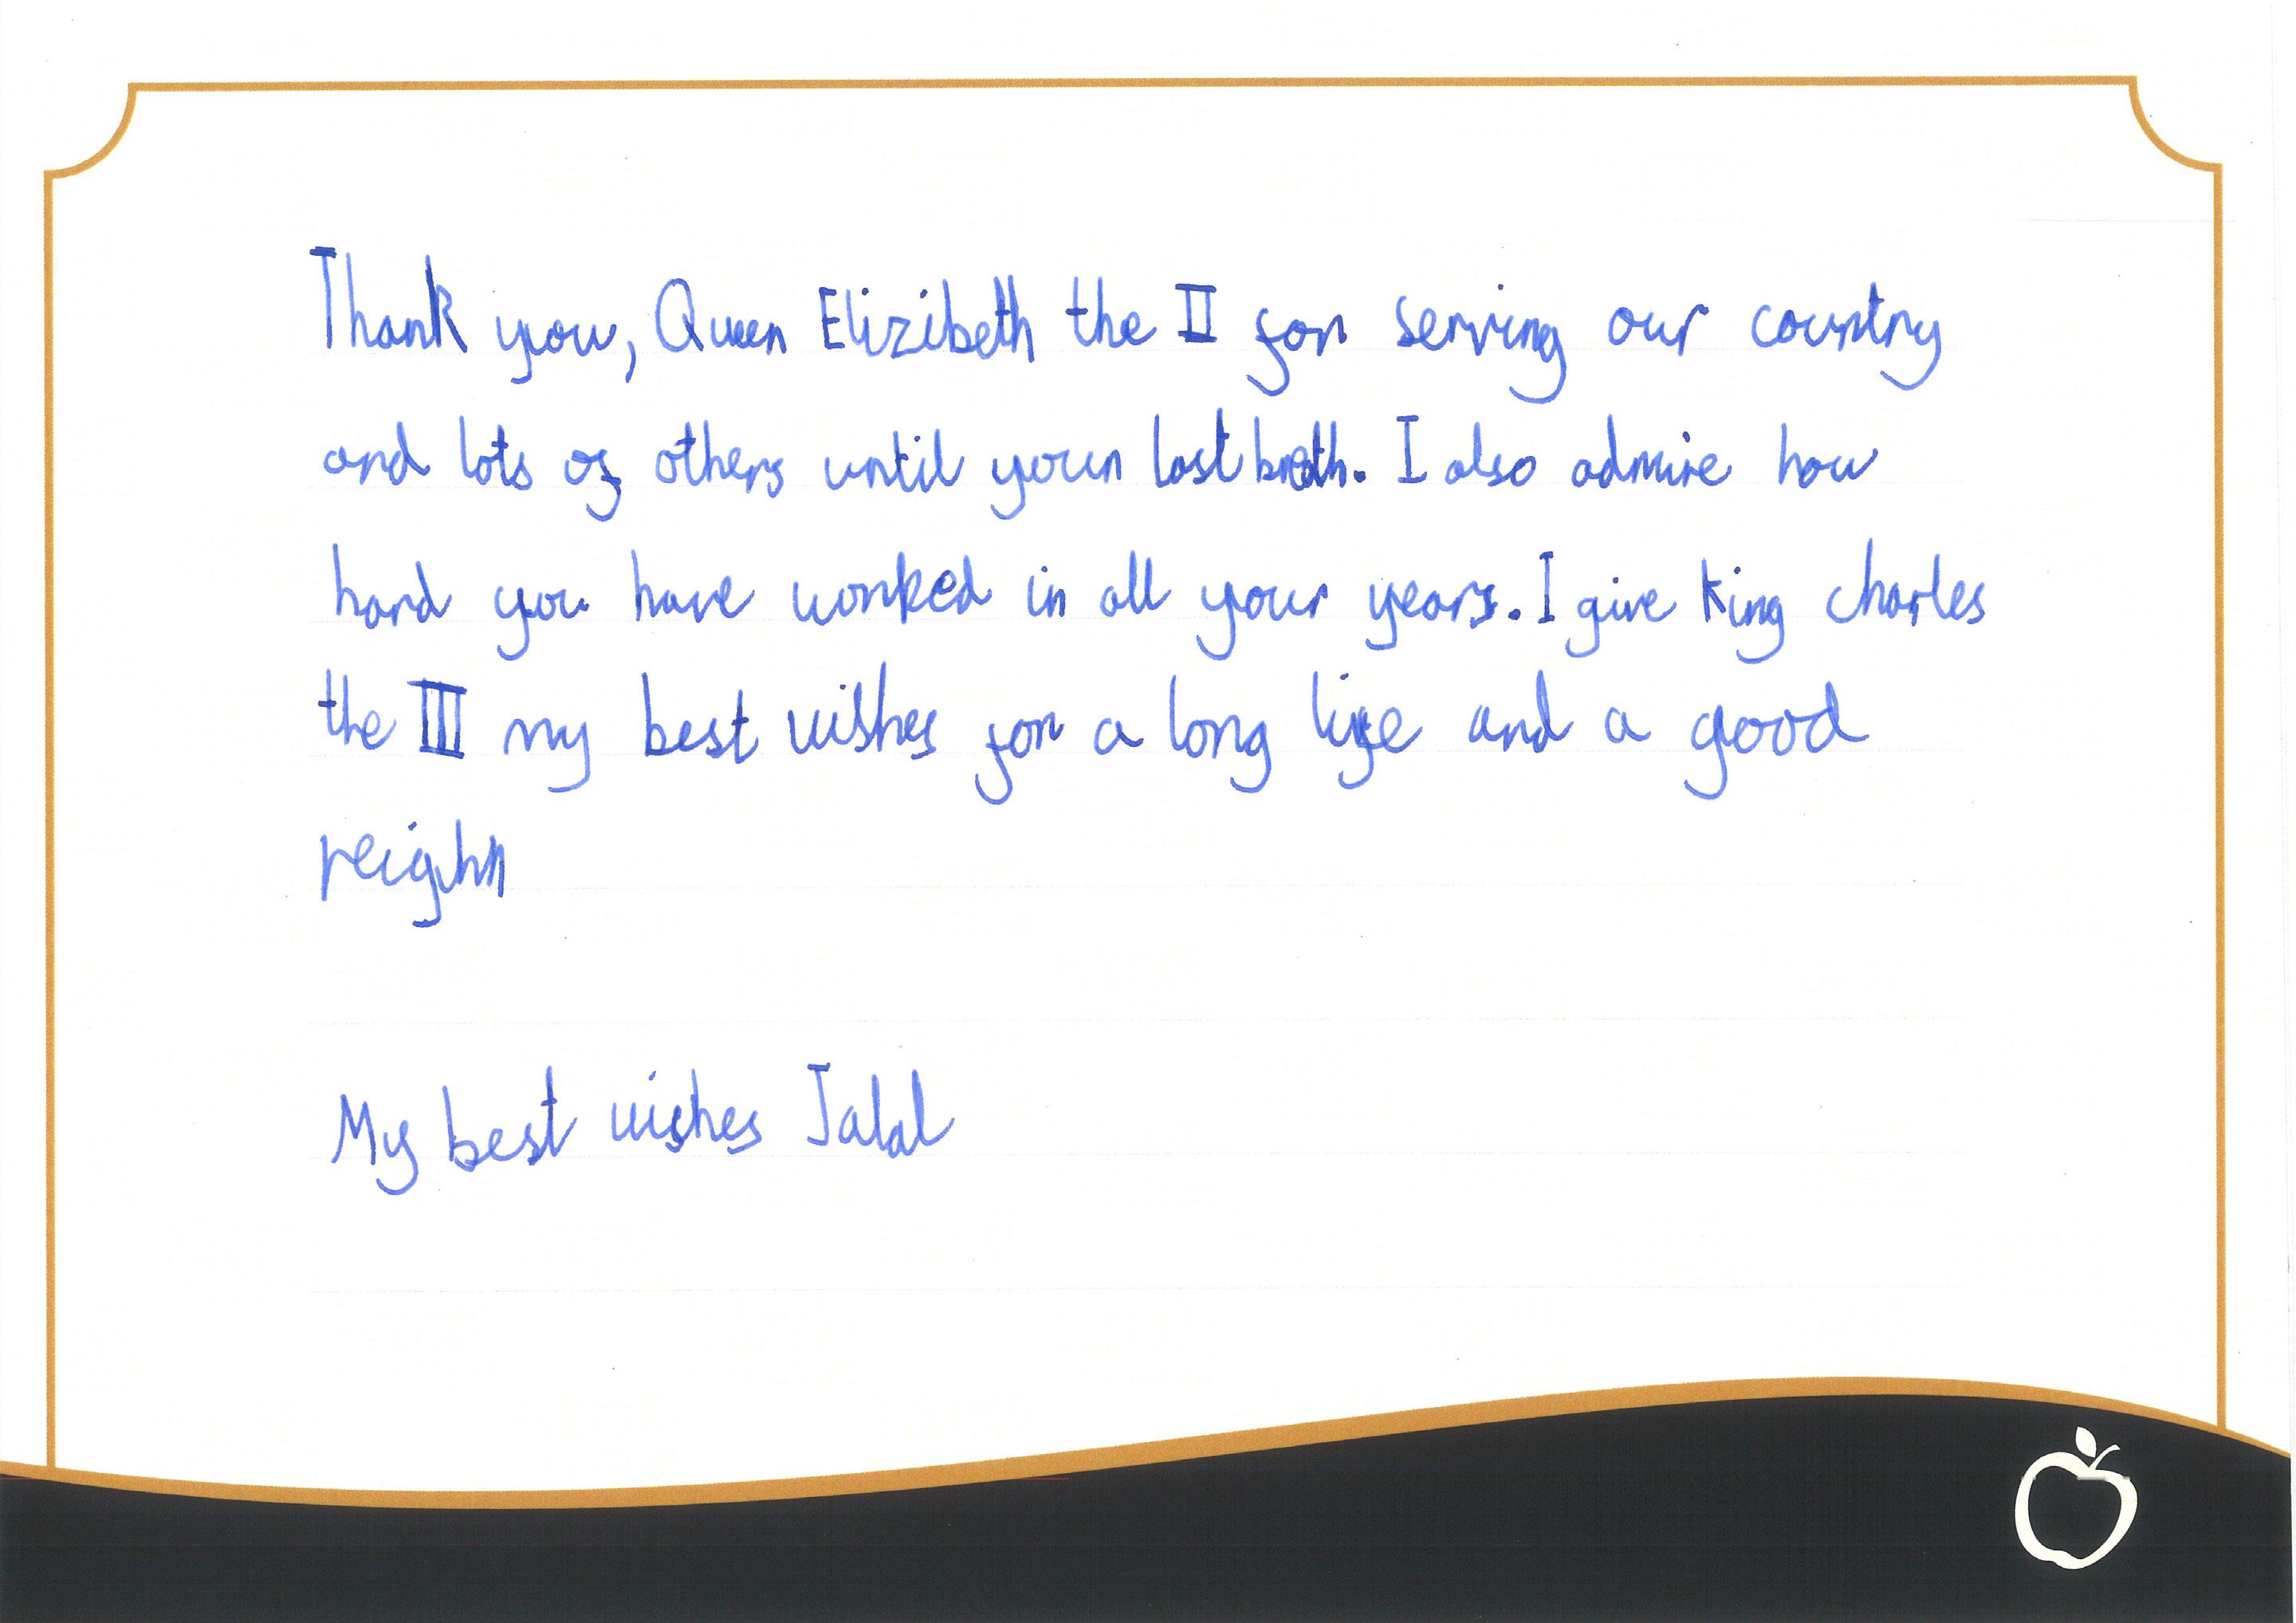 Thank you, Queen Elizibeth the II for serving our country
and lots of others until your last breath. I also admire how
hard you have worked in all your years. I give King charles
the III my best wishes for a long life and a good
reighn
My best wishes Jalal